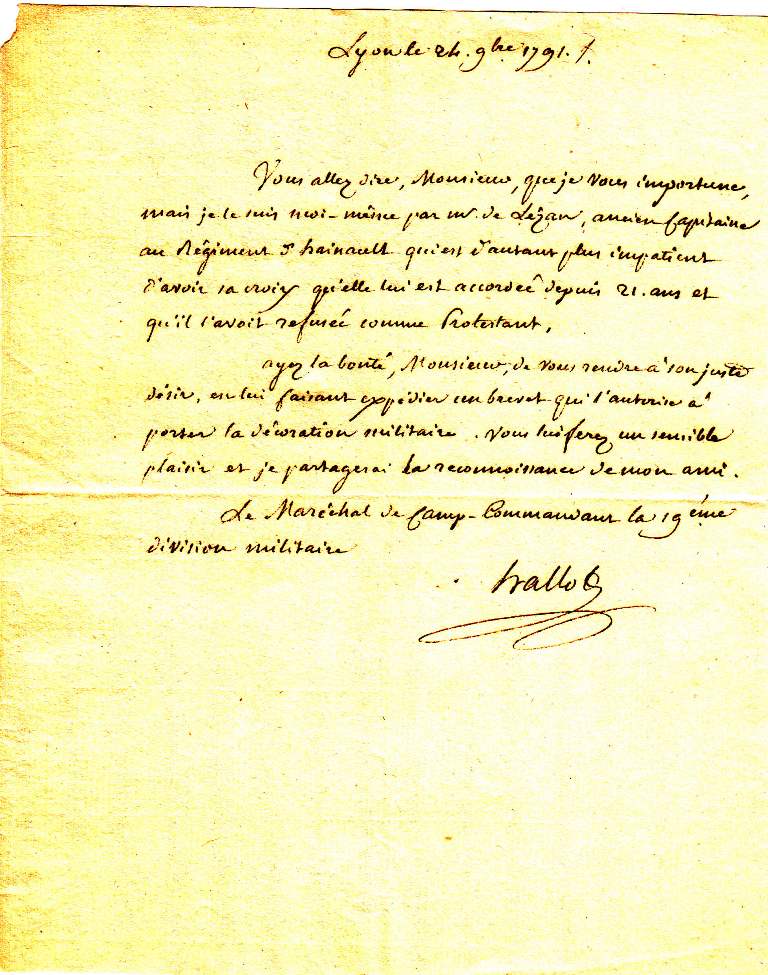 Lyon le 24. 9bre 1791.
Vous allez dire, Monsieur, que je vous importune,
mais je le suis moi-même par mr. de Lézan, ancien Capitaine
au Régiment d'hainault qui est d'autant plus impatient
d'avoir sa croix qu'elle lui est accordeé depuis 21. ans et
qu'il l'avoit refuseé comme Protestant.
ayez la bonté, Monsieur, de vous rendre à son juste
désir, en lui faisant expédier un brevet qui l'autorise à
porter la décoration militaire. vous lui ferez un sensible
plaisir et je partagerai la reconnoissance de mon ami.
Le Maréchal de Camp-Commandant la 19éme
division militaire
hallot